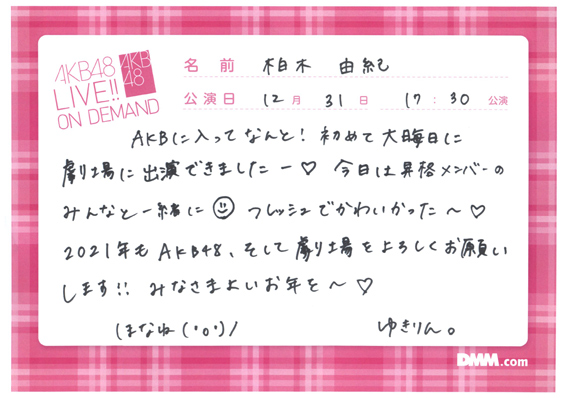 AKB48
LIVE!!
ON DEMAND
AKB
48
名前 柏木 由紀
公演日 12月 31日 17:30 公演
AKBに入ってなんと!初めて大晦日に
劇場に出演できましたー♡ 今日は昇格メンバーの
みんなと一緒に☺ フレッシュでかわいかった〜♡
2021年もAKB48、そして劇場をよろしくお願い
します!! みなさまよいお年を〜♡
ほなね(・o・)ノ ゆきりん。
DMM.com